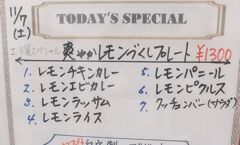 11/7
(土)
TODAY'S SPECIAL
土日昼スペシャル 爽やかレモンづくしプレート ¥1300
1. レモンチキンカレー
2. レモンエビカレー
3. レモンラッサム
4. レモンライス
5. レモンパニール
6. レモンピクルス
7. クッチュンバー(サラダ)